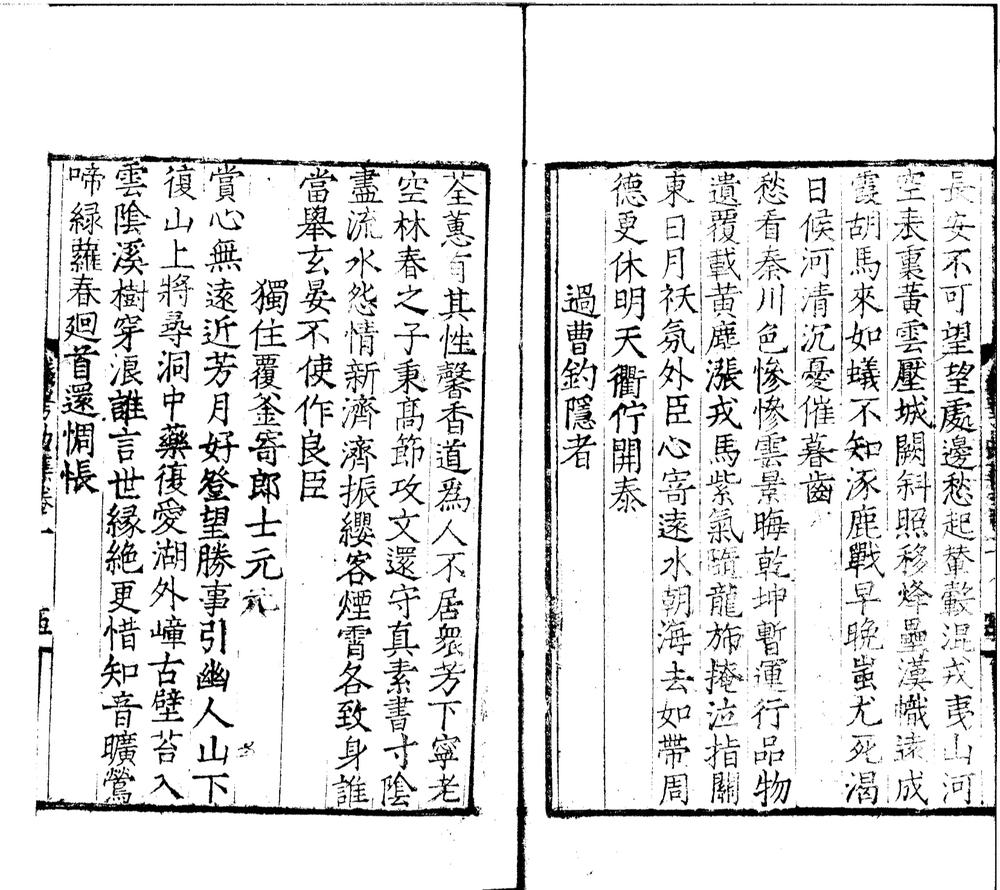 長安不可望望處邊愁起輦轂混戎夷山河
空表裏黃雲壓城闕斜照移烽壘漢幟遠成
霞胡馬來如蟻不知涿鹿戰早晚蚩尤死渴
日候河清沉憂催暮齒
愁看秦川色慘慘雲景晦乾坤暫運行品物
遺覆載黃塵漲戎馬紫氣隨龍斾掩泣指關
東日月祅氛外臣心寄遠水朝海去如帶周
德更休明天衢佇開泰
過曹鈞隱者
荃蕙有其性馨香道為人不居衆芳下寧老
空林春之子秉高節攻文還守真素書寸陰
盡流水怨情新濟濟振纓客煙霄各致身誰
當舉玄晏不使作良臣
獨住覆釜寄郎士元
賞心無遠近芳月好登望勝事引幽人山下
復山上將尋洞中藥復愛湖外嶂古壁苔入
雲陰溪樹穿浪誰言世縁絶更惜知音曠鶯
啼緑蘿春廻首還惆悵
五